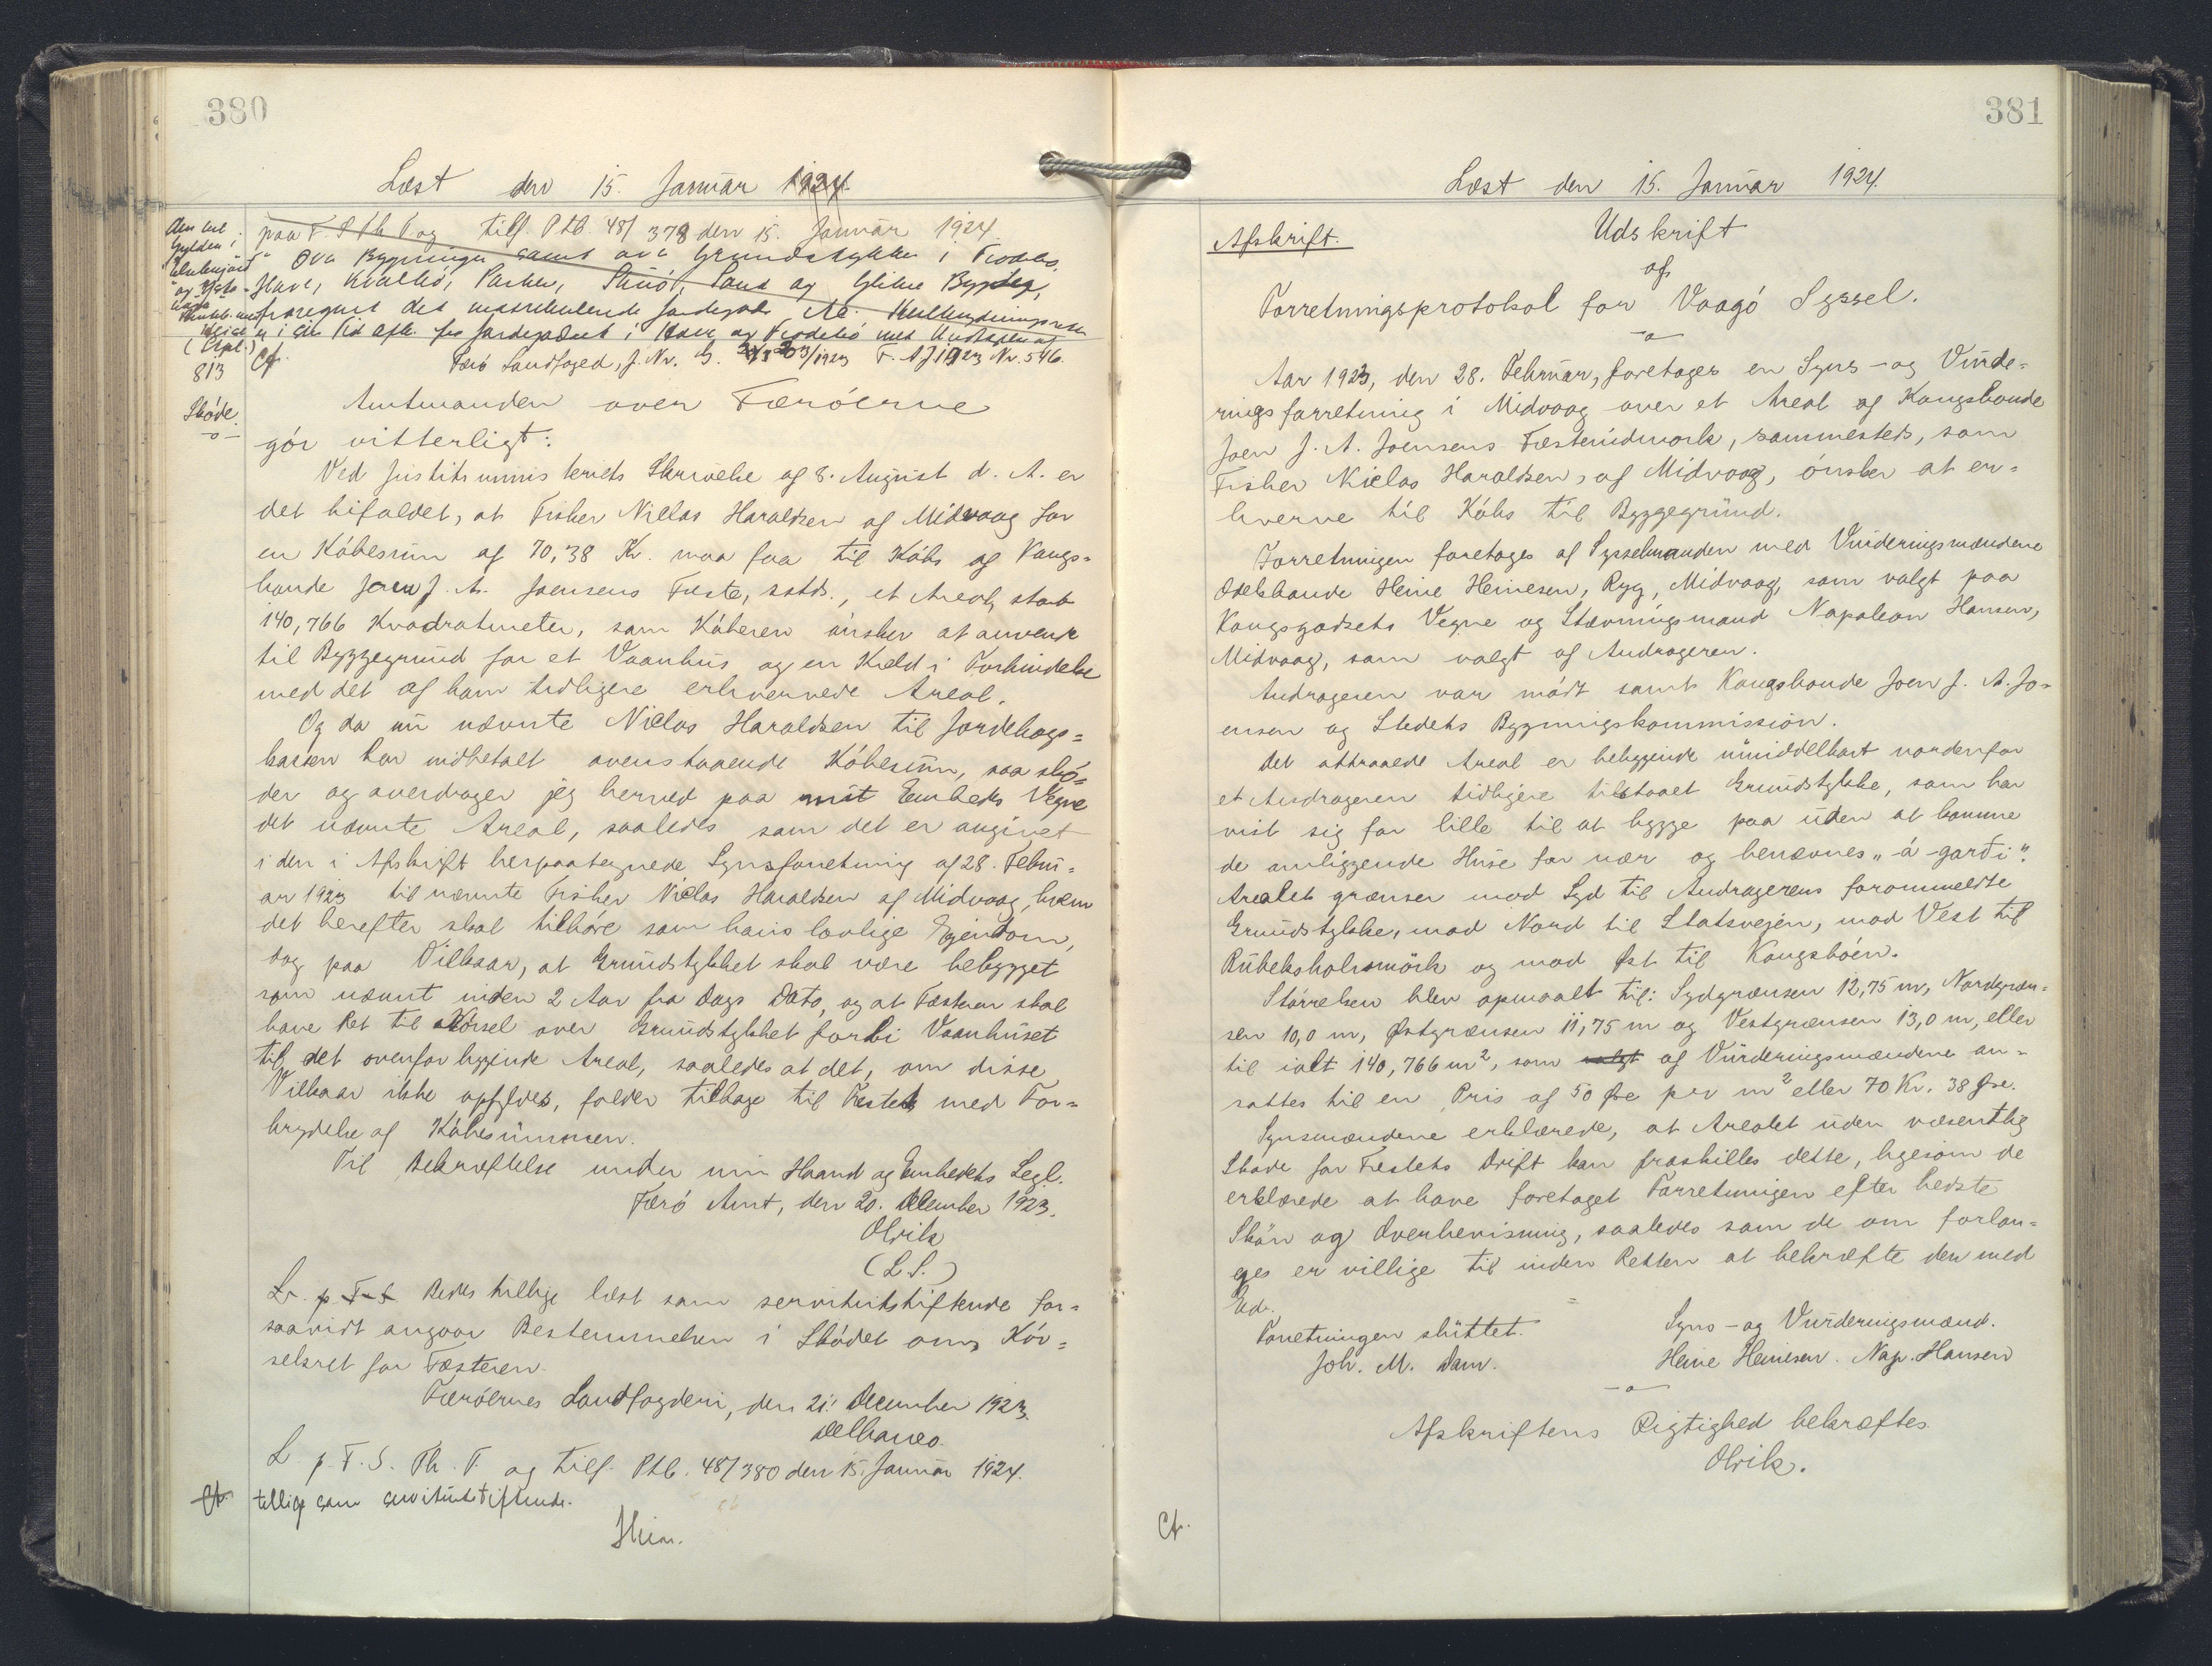 380
Læst den 15. Januar 1924.
paa T. S. Th. T og tilf. Ptb. 48/378 den 15. Januar 1924.
813
Cf.
Færø Landfoged, J. Nr. G. 203/1923 F. A J 1923 Nr. 546.
Skøde.
Amtmanden over Færøerne
gør vitterligt:
Ved Justitsministeriets Skrivelse af 8. August d. A. er
det bifaldet, at Fisker Niclas Haraldsen af Midvaag for
en Købesum af 70,38 Kr. maa faa til Købs af Kongs=
bonde Joen J. A. Joensens Fæste, sstds., et Areal, stort
140,766 Kvadratmeter, som Køberen ønsker at anvende
til Byggegrund for et Vaanhus og en Kæld i Forbindelse
med det af ham tidligere erhvervede Areal.
Og da nu nævnte Niclas Haraldsen til Jordebogs=
kassen har indbetalt ovenstaaende Købesum, saa skø=
der og overdrager jeg herved paa mit Embeds Vegne
det nævnte Areal, saaledes som det er angivet
i den i Afskrift herpaategnede Synsforretning af 28. Febru=
ar 1923 til nævnte Fisker Niclas Haraldsen af Midvaag, hvem
det herefter skal tilhøre som hans lovlige Ejendom,
dog paa Vilkaar, at Grundstykket skal være bebygget
som nævnt inden 2 Aar fra Dags Dato, og at Fæsteren skal
have Ret til Kørsel over Grundstykket forbi Vaanhuset
til det ovenfor liggende Areal, saaledes at det, om disse
Vilkaar ikke opfyldes, falder tilbage til Fæstet med For=
brydelse af Købesummen.
Til Bekræftelse under min Haand og Embedets Segl.
Færø Amt, den 20. December 1923.
Olrik
(L.S.)
L. p. T. S. Bedes tillige læst som servitutstiftende for=
saavidt angaar Bestemmelsen i Skødet om Kør=
selsret for Fæsteren.
Færøernes Landfogderi, den 21. December 1923.
L. p. T. S. Th. T. og tilf. Ptb. 48/380 den 15. Januar 1924.
Cf. tillige som servitutstiftende.
381
Læst den 15. Januar 1924.
Afskrift.
Udskrift
af
Forretningsprotokol for Vaagø Syssel.
Aar 1923, den 28. Februar, foretages en Syns- og Vurde=
ringsforretning i Midvaag over et Areal af Kongsbonde
Joen J. A. Joensens Fæsteudmark, sammesteds, som
Fisker Niclas Haraldsen, af Midvaag, ønsker at er=
hverve til Købs til Byggegrund.
Forretningen foretages af Sysselmanden med Vurderingsmændene
Odelsbonde Heine Heinesen, Ryg, Midvaag, som valgt paa
Kongsgodsets Vegne og Stævningsmand Napoleon Hansen,
Midvaag, som valgt af Andrageren.
Andrageren var mødt samt Kongsbonde Joen J. A. Jo=
ensen og Stedets Bygningskommission.
Det attraaede Areal er beliggende umiddelbart nordenfor
et Andrageren tidligere tilstaaet Grundstykke, som har
vist sig for lille til at bygge paa uden at komme
de omliggende Huse for nær og benævnes "á garði".
Arealet grænser mod Syd til Andragerens forommeldte
Grundstykke, mod Nord til Statsvejen, mod Vest til
Rubeksholsmørk og mod Øst til Kongsbøen.
Størrelsen blev opmaalt til: Sydgrænsen 12,75 m, Nordgræn=
sen 10,0 m, Østgrænsen 11,75 m og Vestgrænsen 13,0 m, eller
til ialt 140,766 m², som valgt af Vurderingsmændene an=
sattes til en Pris af 50 Øre per m² eller 70 Kr. 38 Øre.
Synsmændene erklærede, at Arealet uden væsentlig
Skade for Fæstets Drift kan fraskilles dette, ligesom de
erklærede at have foretaget Forretningen efter bedste
Skøn og Overbevisning, saaledes som de om forlan=
ges er villige til inden Retten at bekræfte den med
Ed.
Forretningen sluttet.
Syns- og Vurderingsmænd.
Joh. M. Dam.
Heine Heinesen. Nap. Hansen
Afskriftens Rigtighed bekræftes.
Olrik.
Cf.